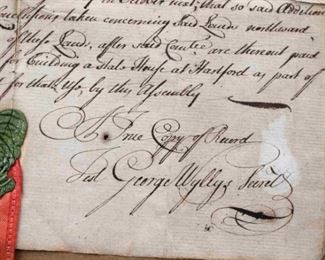 in October next, that so said Addition
taken concerning said Lands northward
of these Lands, after said Cost are thereout paid
for Building a State House at Hartford as part of
for that Use, by this Assembly
A True Copy of Record
Test George Wyllys Secret